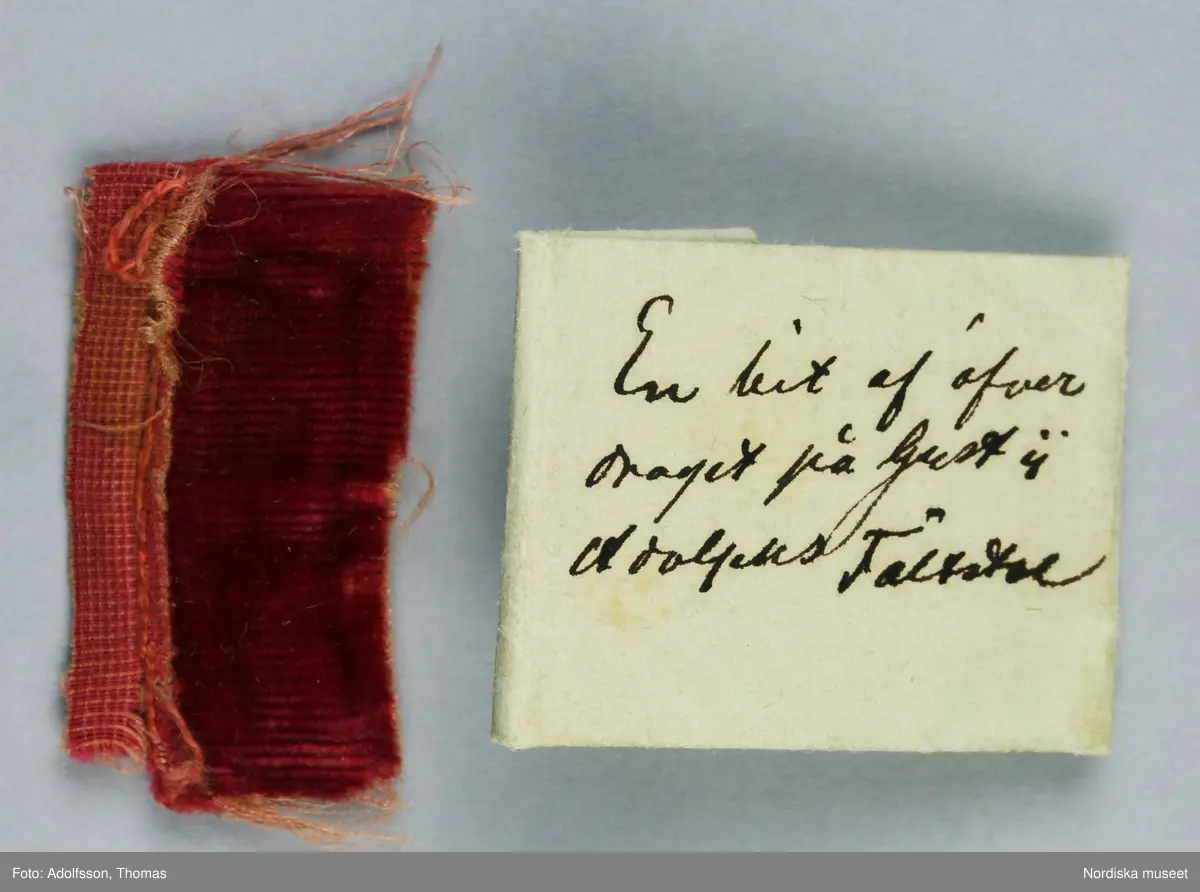 En bit af öfver
draget på Gust ij
Adolphs Fältstol
Foto: Adolfsson, Thomas
Nordiska museet